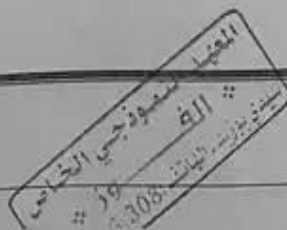 المعهد النموذجي الخاص
الفـــوز
سيدي بوزيد - الهاتف: 308